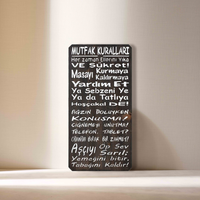 MUTFAK KURALLARI
Her zaman Ellerini Yıka
VE Şükret!
Masayı Kurmaya
Kaldırmaya
Yardım Et
Ya Sebzeni Ye
Ya da Tatlıya
Hoşçakal DE!
AĞZIN DOLUYKEN
KONUŞMA!
ÇİĞNEMEYİ UNUTMA!
TELEFON, TABLET?
Aşçıyı Öp Sev
Sarıl
Yemeğini bitir,
Tabağını Kaldır!